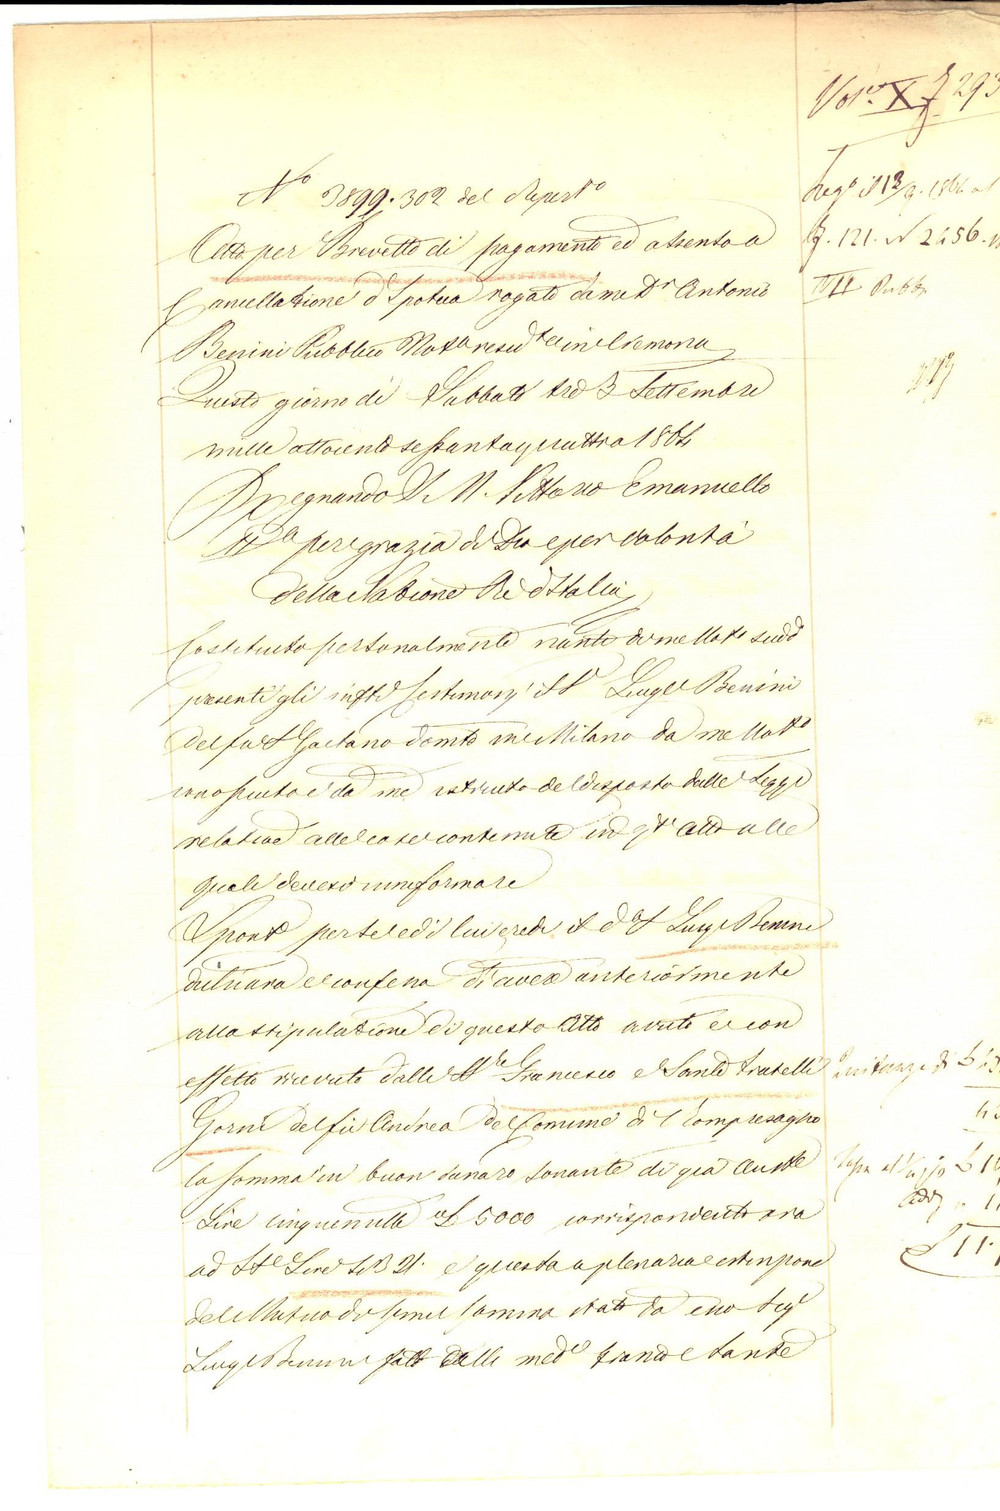 N.o 3899.302 del Repert.o
Atto per Brevetto di pagamento ed assenso a
Cancellazione d'Ipoteca rogato da me Dr Antonio
Benini Pubblico Not.o resid.te in Cremona
Questo giorno di Sabbato tre 3 Settembre
mille ottocento sessantaquattro 1864
Regnando S. M. Vittorio Emanuello
II.o per grazia di Dio e per volontà
della Nazione Re d'Italia
Costituito personalmente nanti di me Not.o sudd.o
presenti gli infti Testimonj il S.r Luigi Benini
del fu S.r Gaetano domto in Milano da me Not.o
conosciuto e da me istruito del disposto dalle Leggi
relative alle cose contenute in q.to atto alle
quali devesi uniformare
Spont.e per se ed i lui eredi il d.o S.r Luigi Benini
dichiara e confessa di aver anteriormente
alla stipulazione di questo Atto avuto e con
effetto ricevuto dalli SS.ri Francesco e Sante fratelli
Gorni del fu Andrea del Comune di
la somma in buon danaro sonante di già Austr.e
Lire cinquemille £ 5000 corrispondenti ora
ad It.e Lire e questa a plenaria estinzione
del Mutuo di simil somma stato da esso Sig.r
Luigi Benini fatto alli med.i Franc.o e Sante
Vol.e X f 293
Reg.o il 13/9.1864 al
f. 121. N 2456.
III Pubb.
Quitanza di £
£
£ 11.